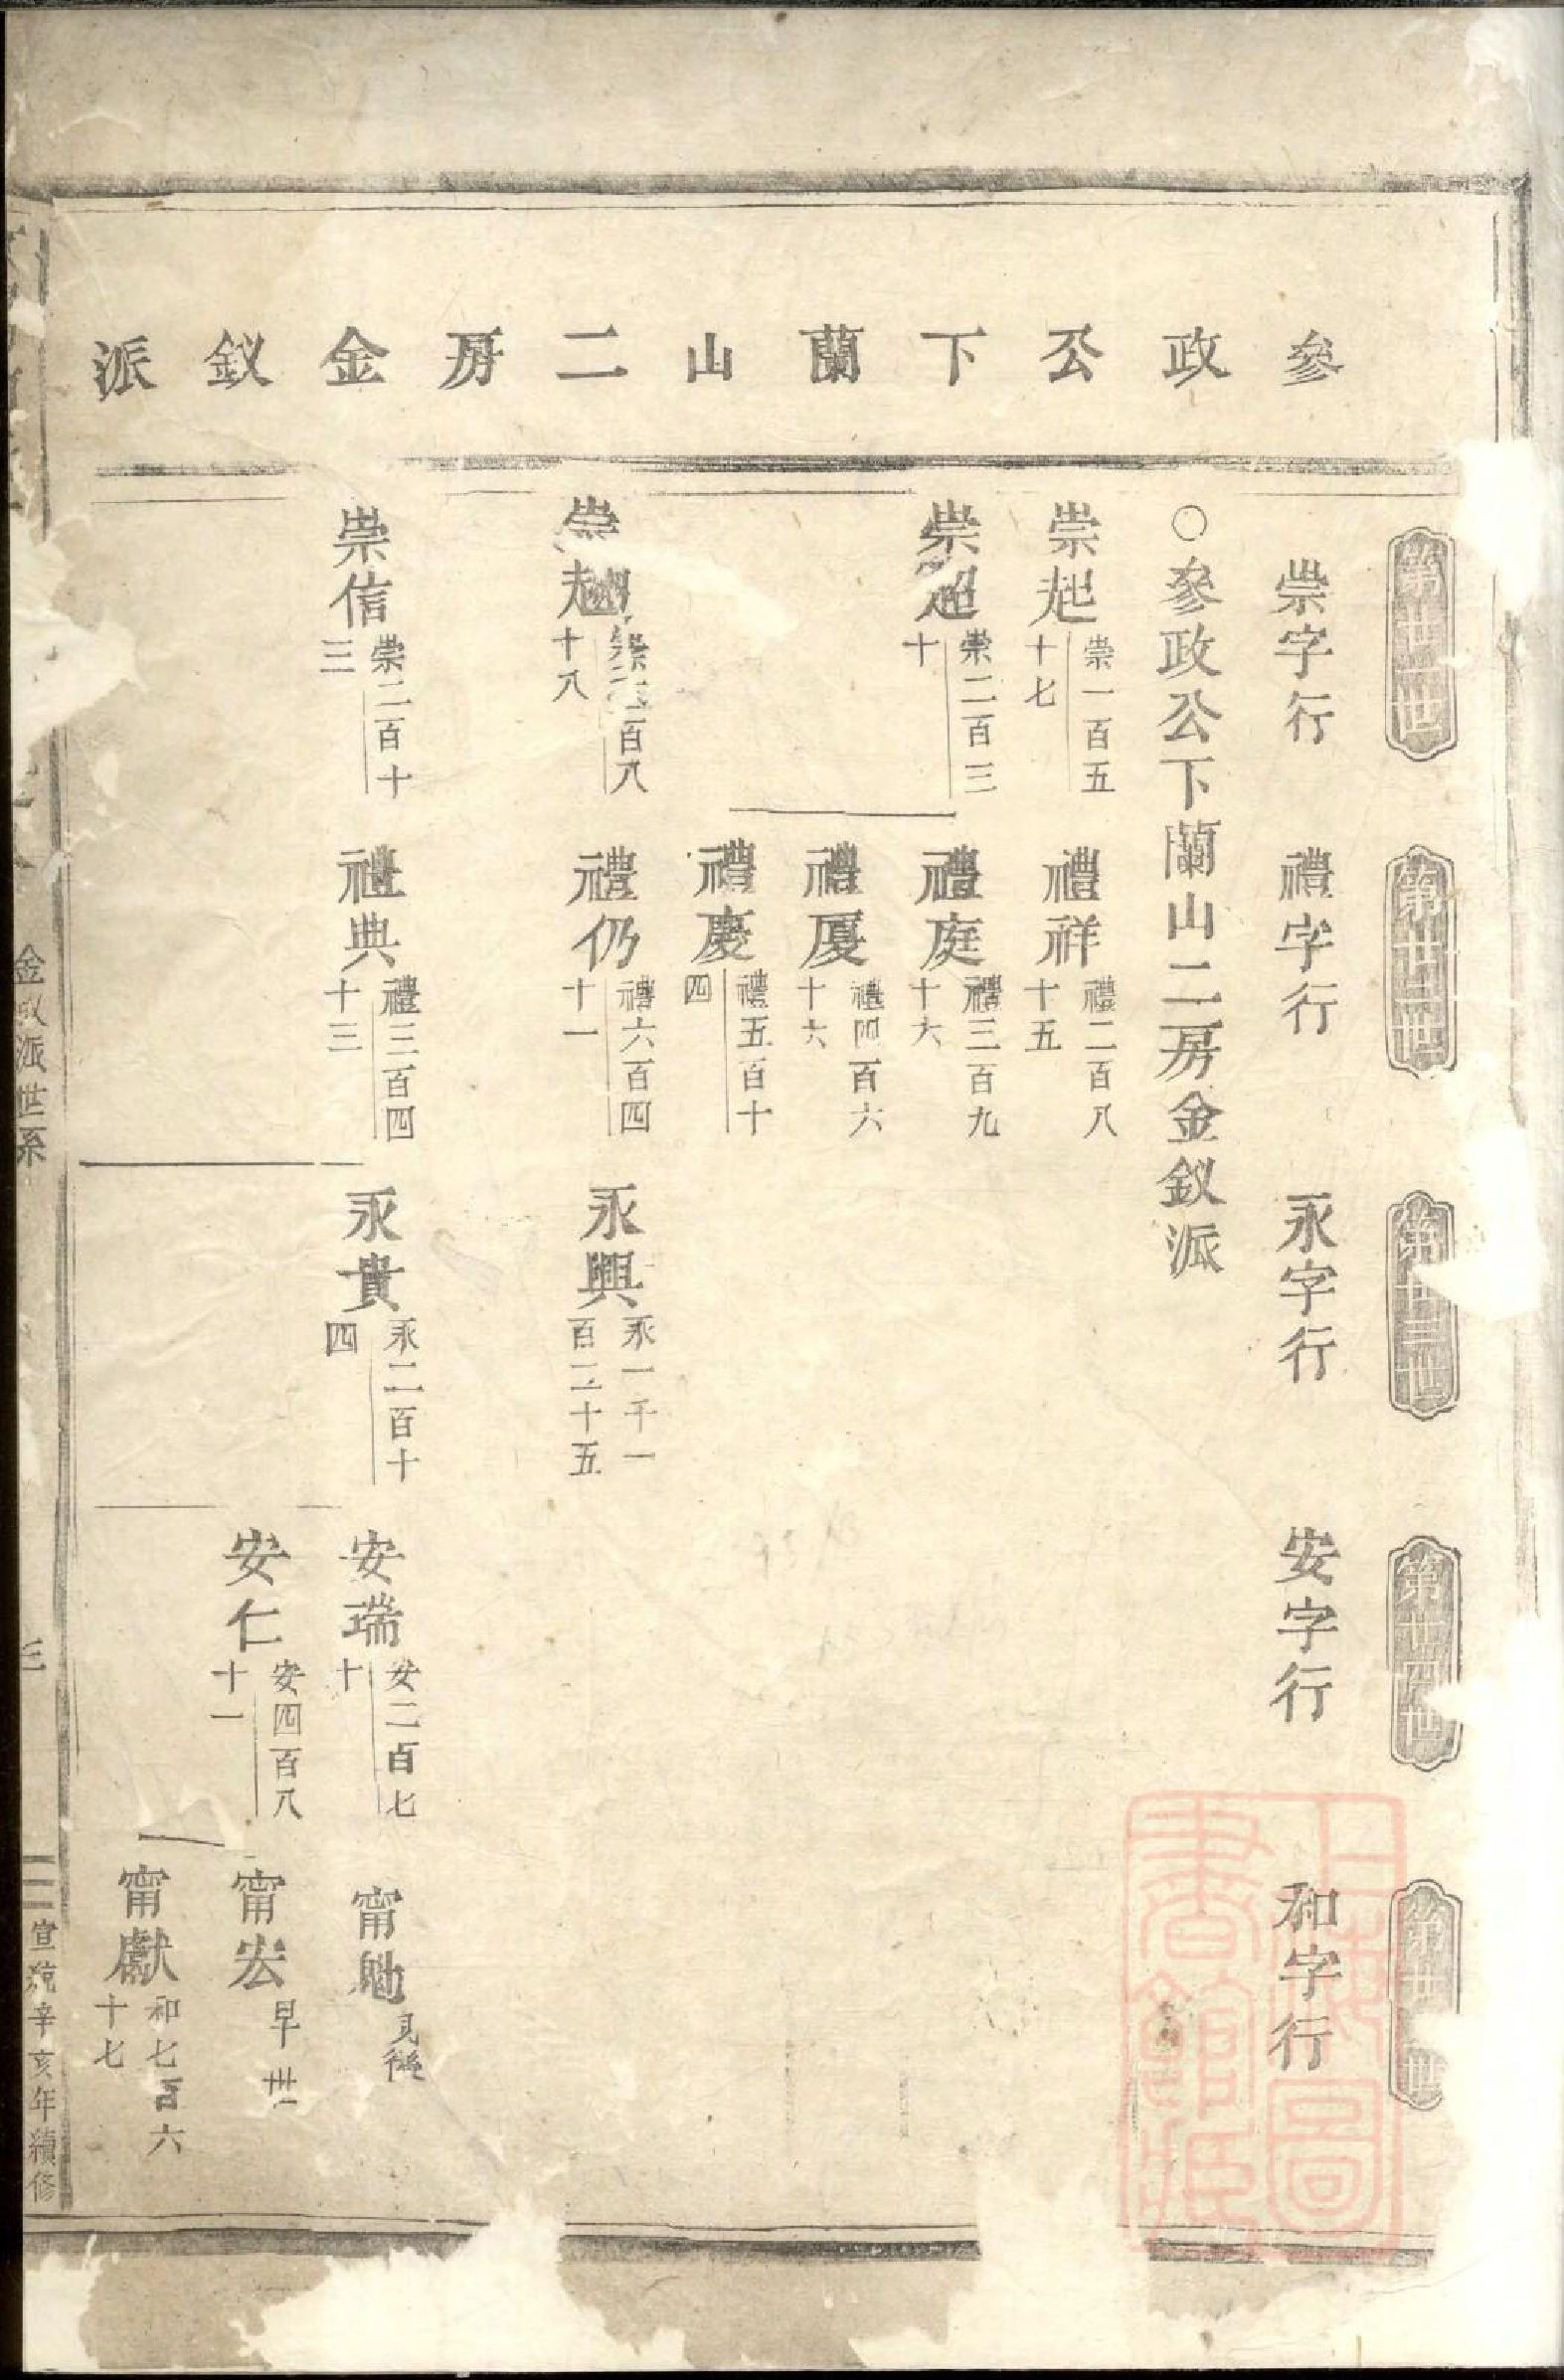 參政公下蘭山二房金釵派
第廿一世
崇字行
第廿二世
禮字行
第廿三世
永字行
第廿四世
安字行
第廿 世
和字行
○參政公下蘭山二房金釵派
崇起 崇一百五十七
禮祥 禮二百八十五
崇超 崇二百三十
禮庭 禮三百九十六
禮厦 禮四百六十六
禮慶 禮五百十四
崇越 崇 百八十八
禮仍 禮六百四十一
永興 永一千一百二十五
崇信 崇二百十三
禮典 禮三百四十三
永貴 永二百十四
安瑞 安二百七十
甯 見後
安仁 安四百八十一
甯宏 早世
甯獻 和七百六十七
金釵派世系
三
宣統辛亥年續修
上海圖書館藏